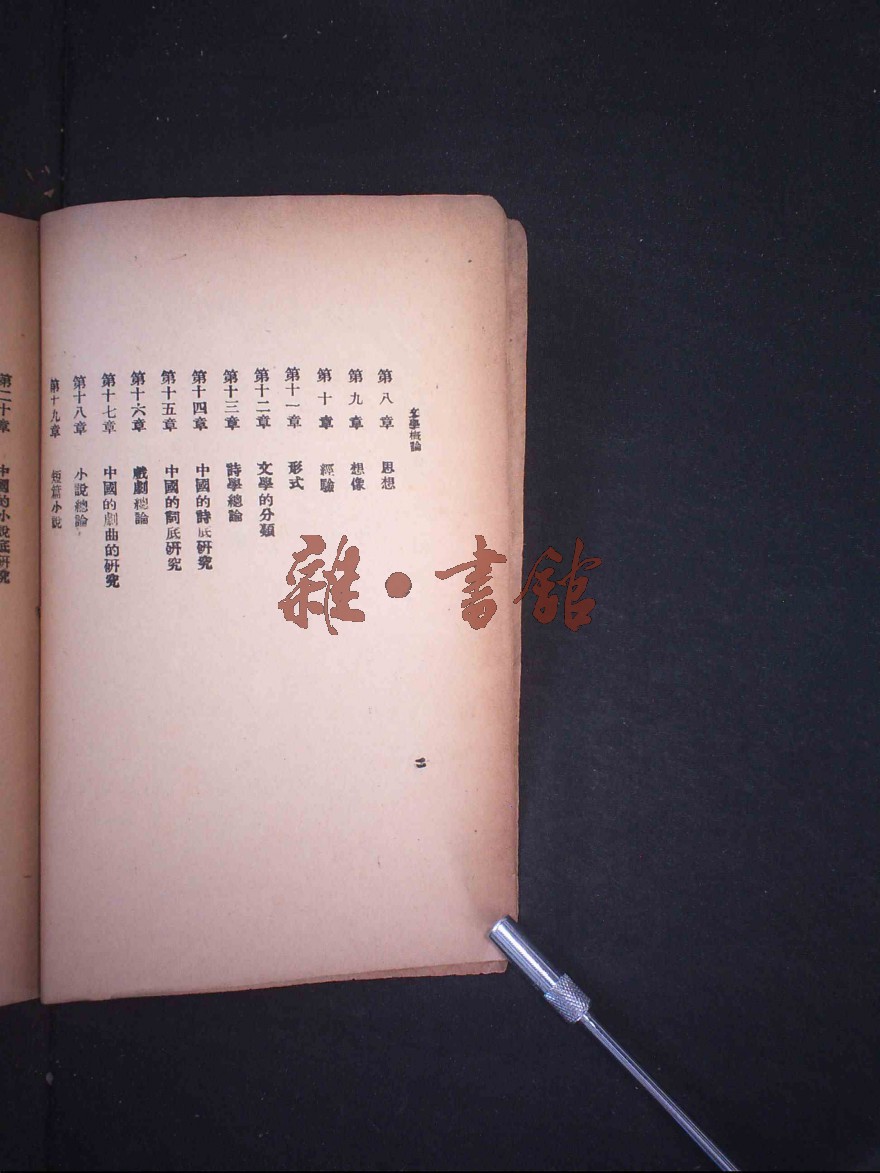 文學概論
第八章 思想
第九章 想像
第十章 經驗
第十一章 形式
第十二章 文學的分類
第十三章 詩學總論
第十四章 中國的詩底研究
第十五章 中國的詞底研究
第十六章 戲劇總論
第十七章 中國的劇曲的研究
第十八章 小說總論
第十九章 短篇小說
二
第二十章 中國的小說底研究
雜•書館